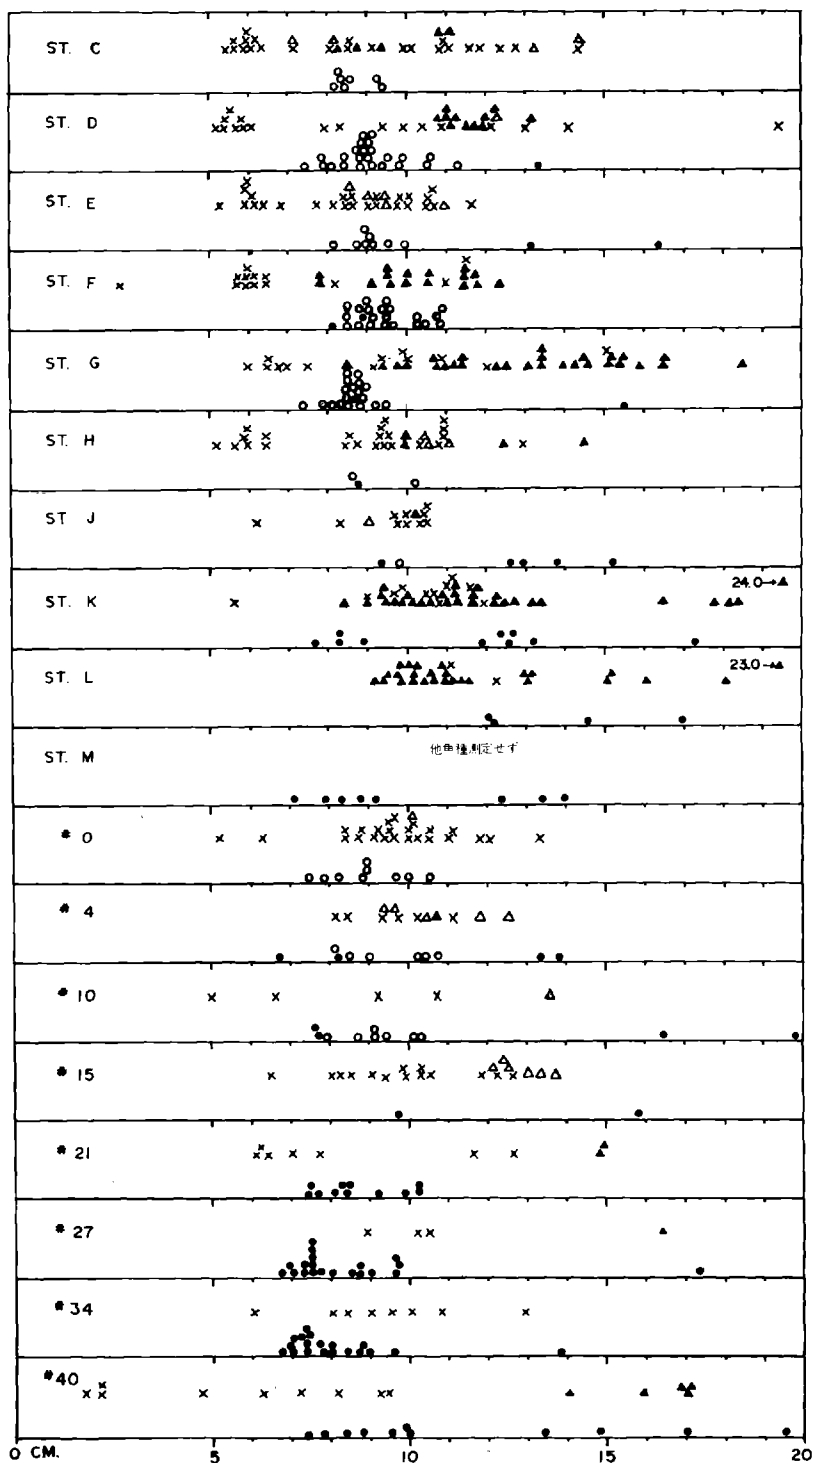 ST. C
ST. D
ST. E
ST. F
ST. G
ST. H
ST J
ST. K
24.0→
ST. L
23.0→
ST. M
他魚種測定せず
# 0
# 4
# 10
# 15
# 21
# 27
# 34
# 40
0 CM. 5 10 15 20